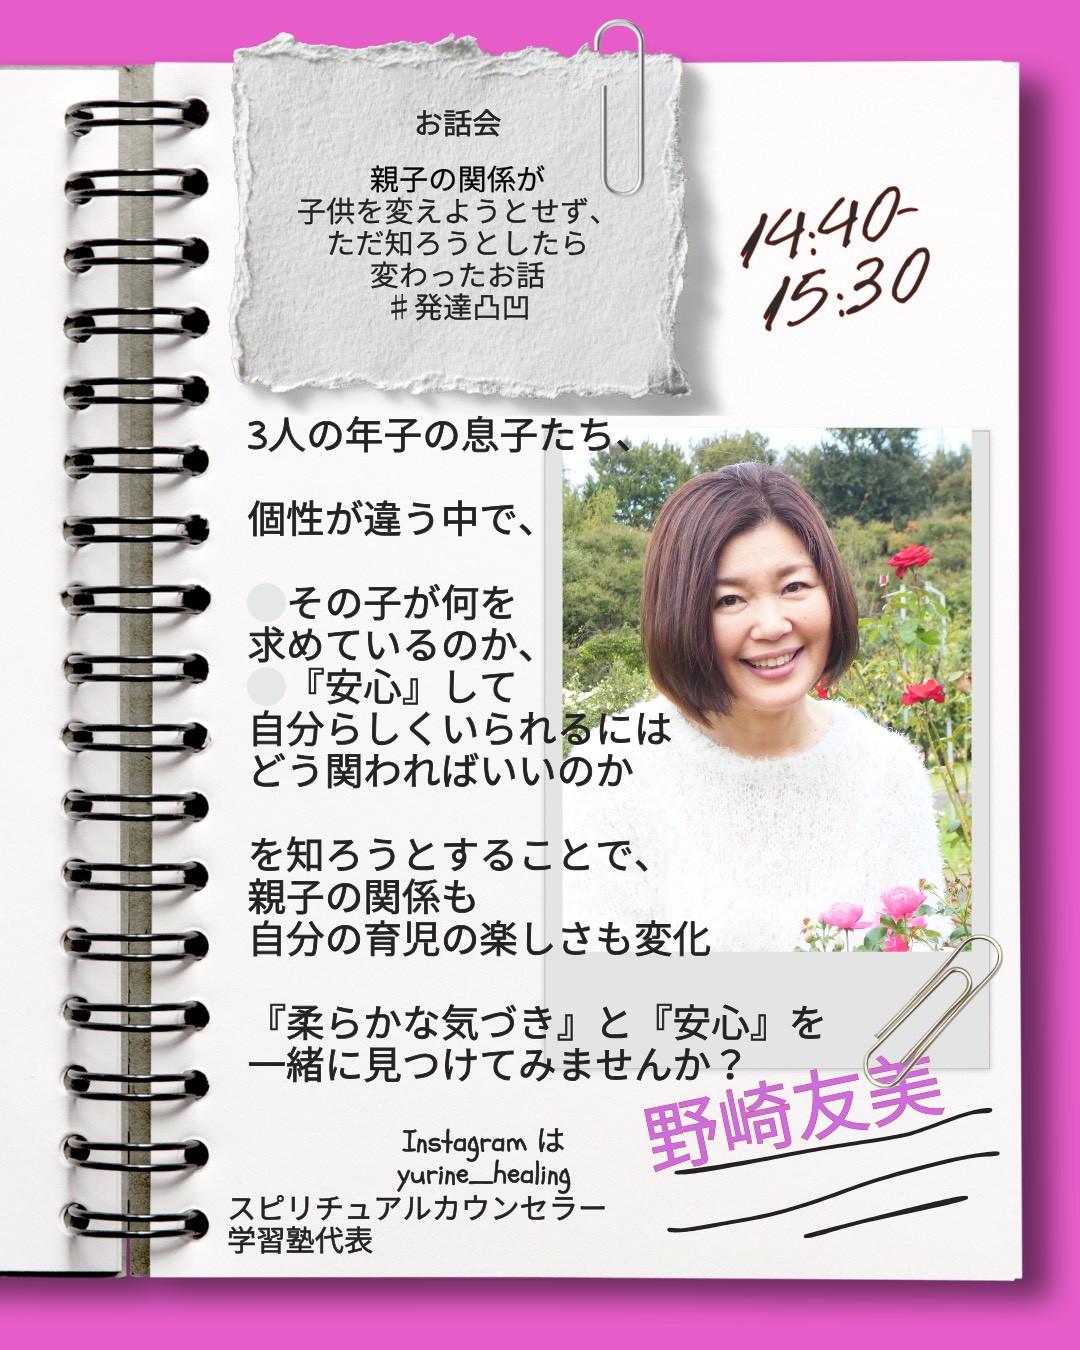 お話会
親子の関係が
子供を変えようとせず、
ただ知ろうとしたら
変わったお話
#発達凸凹
14:40-
15:30
3人の年子の息子たち、
個性が違う中で、
その子が何を
求めているのか、
『安心』して
自分らしくいられるには
どう関わればいいのか
を知ろうとすることで、
親子の関係も
自分の育児の楽しさも変化
『柔らかな気づき』と『安心』を
一緒に見つけてみませんか？
野崎友美
Instagram は
yurine__healing
スピリチュアルカウンセラー
学習塾代表